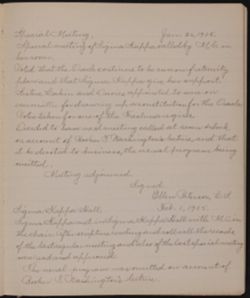 Special Meeting, Jan. 26, 1905.
Special meeting of Sigma Kappa called by M.C. in
her room.
Voted that the Oracle continue to be non-fraternity
board and that Sigma Kappa give her support.
Sisters Lakin and Caswell appointed to see on
committee for drawing up a constitution for the Oracle.
Vote taken for one of the
Decided to have next meeting called at seven o'clock
on account of Booker T. Washington's lecture, and that
it be devoted to business, the usual program being
omitted.
Meeting adjourned.
Signed
Ellen Peterson, C.S.
Sigma Kappa Hall,
Feb. 1, 1905.
Sigma Kappa met in Sigma Kappa Hall with M.C. in
the chair. After scripture reading and roll call the records
of the last regular meeting and also of the last special meeting
were read and approved.
The usual program was omitted on account of
Booker T. Washington's lecture.